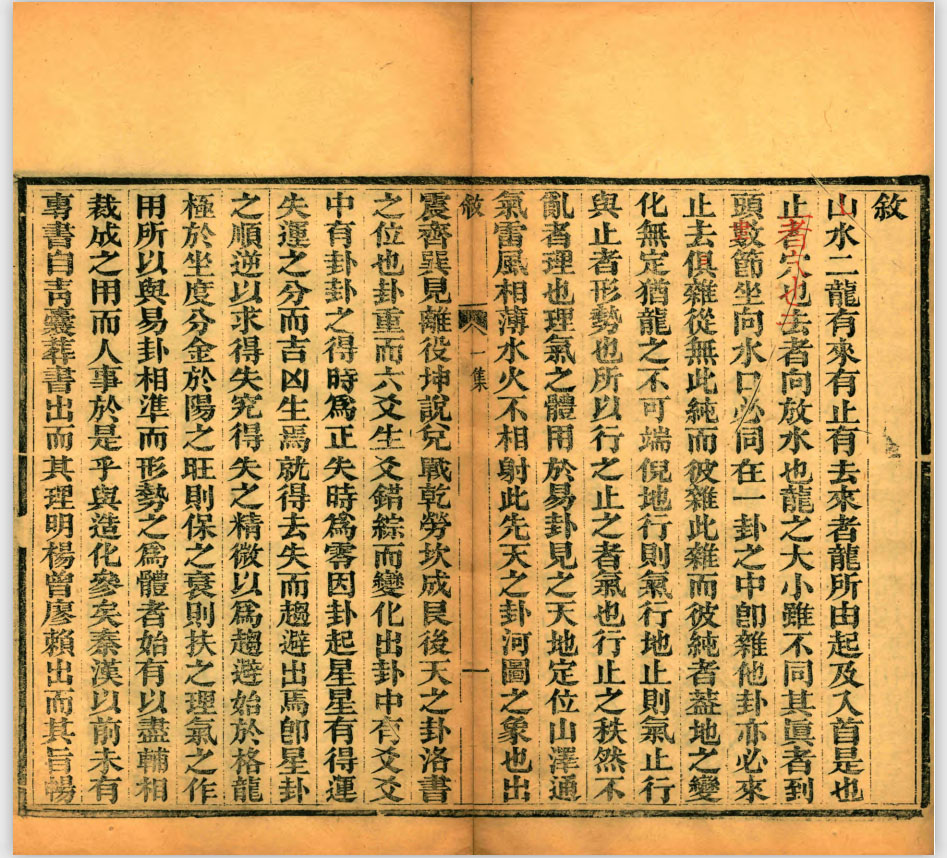 敘
山水二龍有來有止有去來者龍所由起及入首是也
止者穴也去者向放水也龍之大小雖不同其眞者到
頭數節坐向水口必同在一卦之中卽雜他卦亦必來
止去俱雜從無此純而彼雜此雜而彼純者葢地之變
化無定猶龍之不可端倪地行則氣行地止則氣止行
與止者形勢也所以行之止之者氣也行止之秩然不
亂者理也理氣之體用於易卦見之天地定位山澤通
氣雷風相薄水火不相射此先天之卦河圖之象也出
敘 一集 一
震齊巽見離役坤說兌戰乾勞坎成艮後天之卦洛書
之位也卦重而六爻生爻錯綜而變化出卦中有爻爻
中有卦卦之得時爲正失時爲零因卦起星星有得運
失運之分而吉凶生焉就得去失而趨避出焉卽星卦
之順逆以求得失究得失之精微以爲趨避始於格龍
極於坐度分金於陽之旺則保之衰則扶之理氣之作
用所以與易卦相準而形勢之爲體者始有以盡輔相
裁成之用而人事於是乎與造化參矣秦漢以前未有
專書自靑囊葬書出而其理明楊曾廖賴出而其旨暢